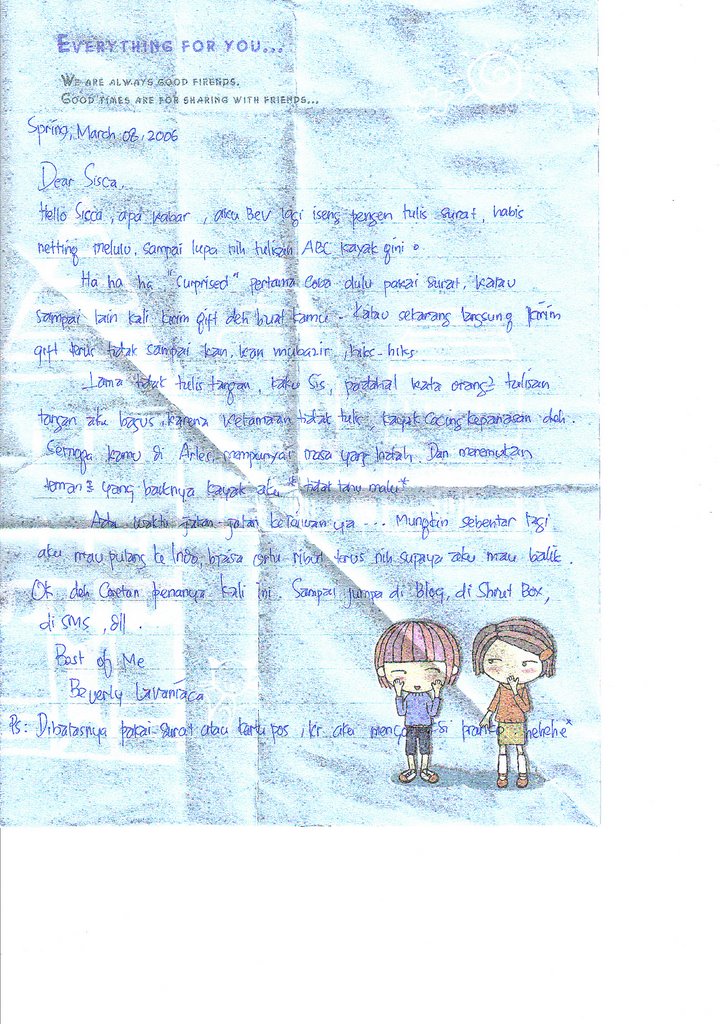 EVERYTHING FOR YOU...
WE ARE ALWAYS GOOD FIRENDS.
GOOD TIMES ARE FOR SHARING WITH FRIENDS...
Spring, March 08, 2006
Dear Sisca,
Hello Sisca, apa kabar, aku Bev lagi iseng pengen tulis surat, habis
netting melulu, sampai lupa nih tulisan ABC kayak gini.
Ha ha ha "surprised" pertama coba dulu pakai surat, kalau
sampai lain kali kirim gift deh buat kamu - Kalau sekarang langsung kirim
gift terus tidak sampai kan, kan mubazir, hiks-hiks
Lama tidak tulis tangan, kaku Sis, padahal kata orang2 tulisan
tangan aku bagus, karena kelamaan tidak tulis, kayak cacing kepanasan deh.
Semoga kamu di Arles, mempunyai masa yang indah. Dan menemukan
teman2 yang baiknya kayak aku * tidak tahu malu*
Ada waktu jalan-jalan ke ... Mungkin sebentar lagi
aku mau pulang ke Indo, biasa ortu ribut terus nih supaya aku mau balik.
Ok deh Coretan penanya kali ini. Sampai jumpa di Blog, di Shout Box,
di SMS, dll.
Best of Me
Beverly
Ps: Dibalasnya pakai surat atau kartu pos, kr aku pranko hehehe*